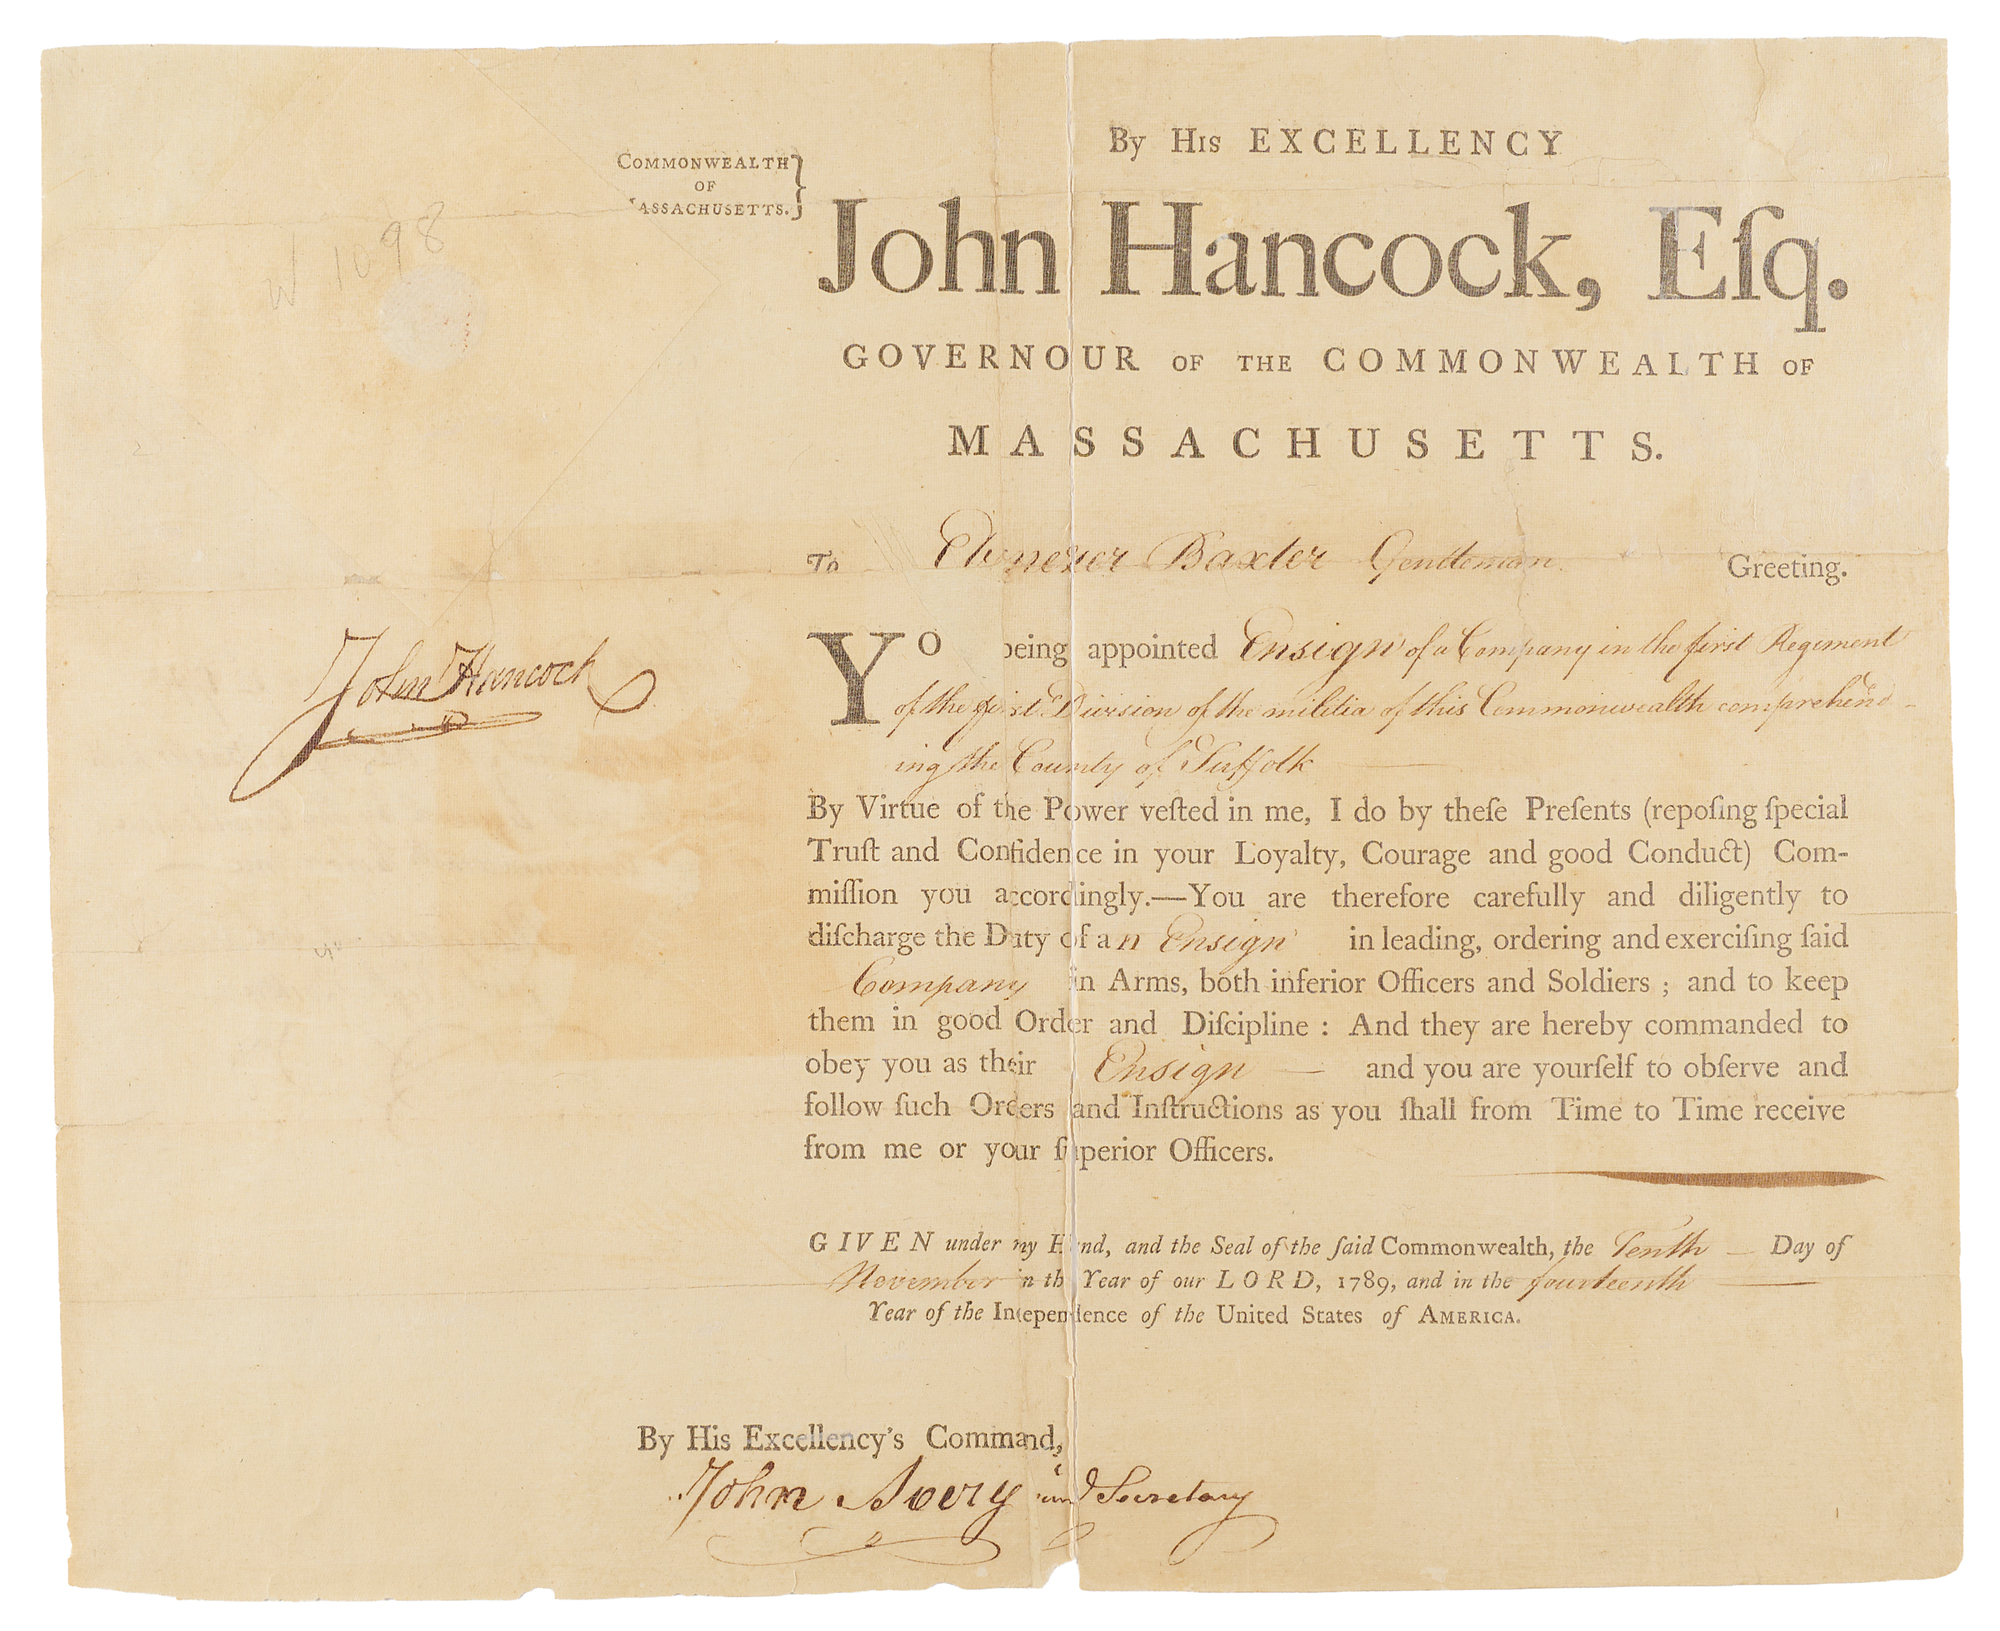 By His EXCELLENCY
COMMONWEALTH
OF
MASSACHUSETTS.
W 1098
John Hancock, Eſq.
GOVERNOUR OF THE COMMONWEALTH OF
MASSACHUSETTS.
To Ebenezer Baxter Gentleman. Greeting.
YO being appointed Ensign of a Company in the first Regiment
of the first Division of the militia of this Commonwealth comprehend-
ing the County of Suffolk
John Hancock
By Virtue of the Power veſted in me, I do by theſe Preſents (repoſing ſpecial
Truſt and Confidence in your Loyalty, Courage and good Conduct) Com-
miſſion you accordingly.—You are therefore carefully and diligently to
diſcharge the Duty of an Ensign in leading, ordering and exerciſing ſaid
Company in Arms, both inferior Officers and Soldiers ; and to keep
them in good Order and Diſcipline : And they are hereby commanded to
obey you as their Ensign — and you are yourſelf to obſerve and
follow ſuch Orders and Inſtructions as you ſhall from Time to Time receive
from me or your ſuperior Officers.
GIVEN under my Hand, and the Seal of the ſaid Commonwealth, the Tenth — Day of
November in the Year of our LORD, 1789, and in the fourteenth
Year of the Independence of the United States of AMERICA.
By His Excellency's Command,
John Avery Secretary